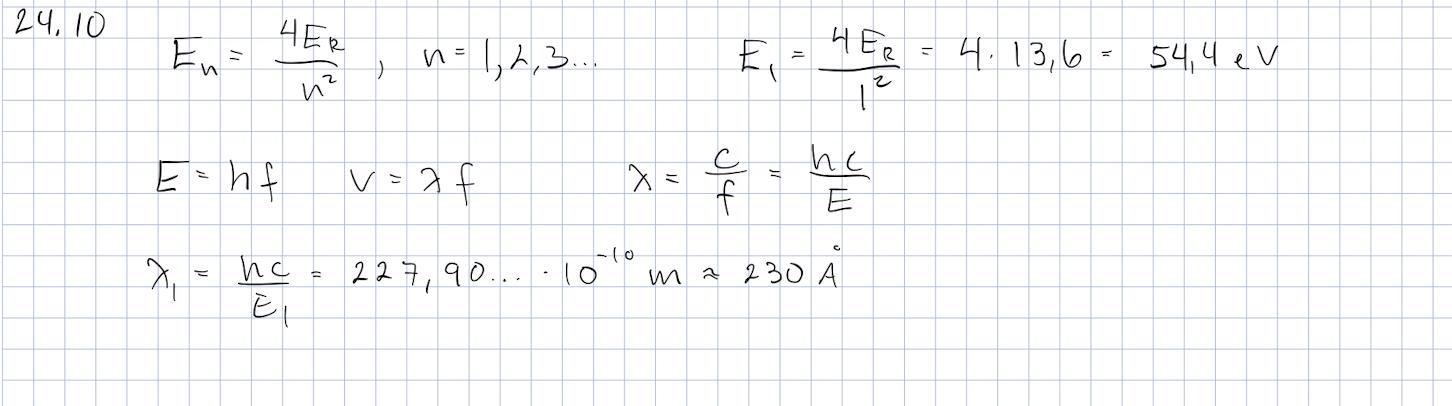 24.10
Eₙ = 4E_R / n² , n = 1,2,3... E₁ = 4E_R / 1² = 4 · 13,6 = 54,4 eV
E = hf v = λf λ = c/f = hc/E
λ₁ = hc/E₁ = 227,90... · 10⁻¹⁰ m ≈ 230 Å